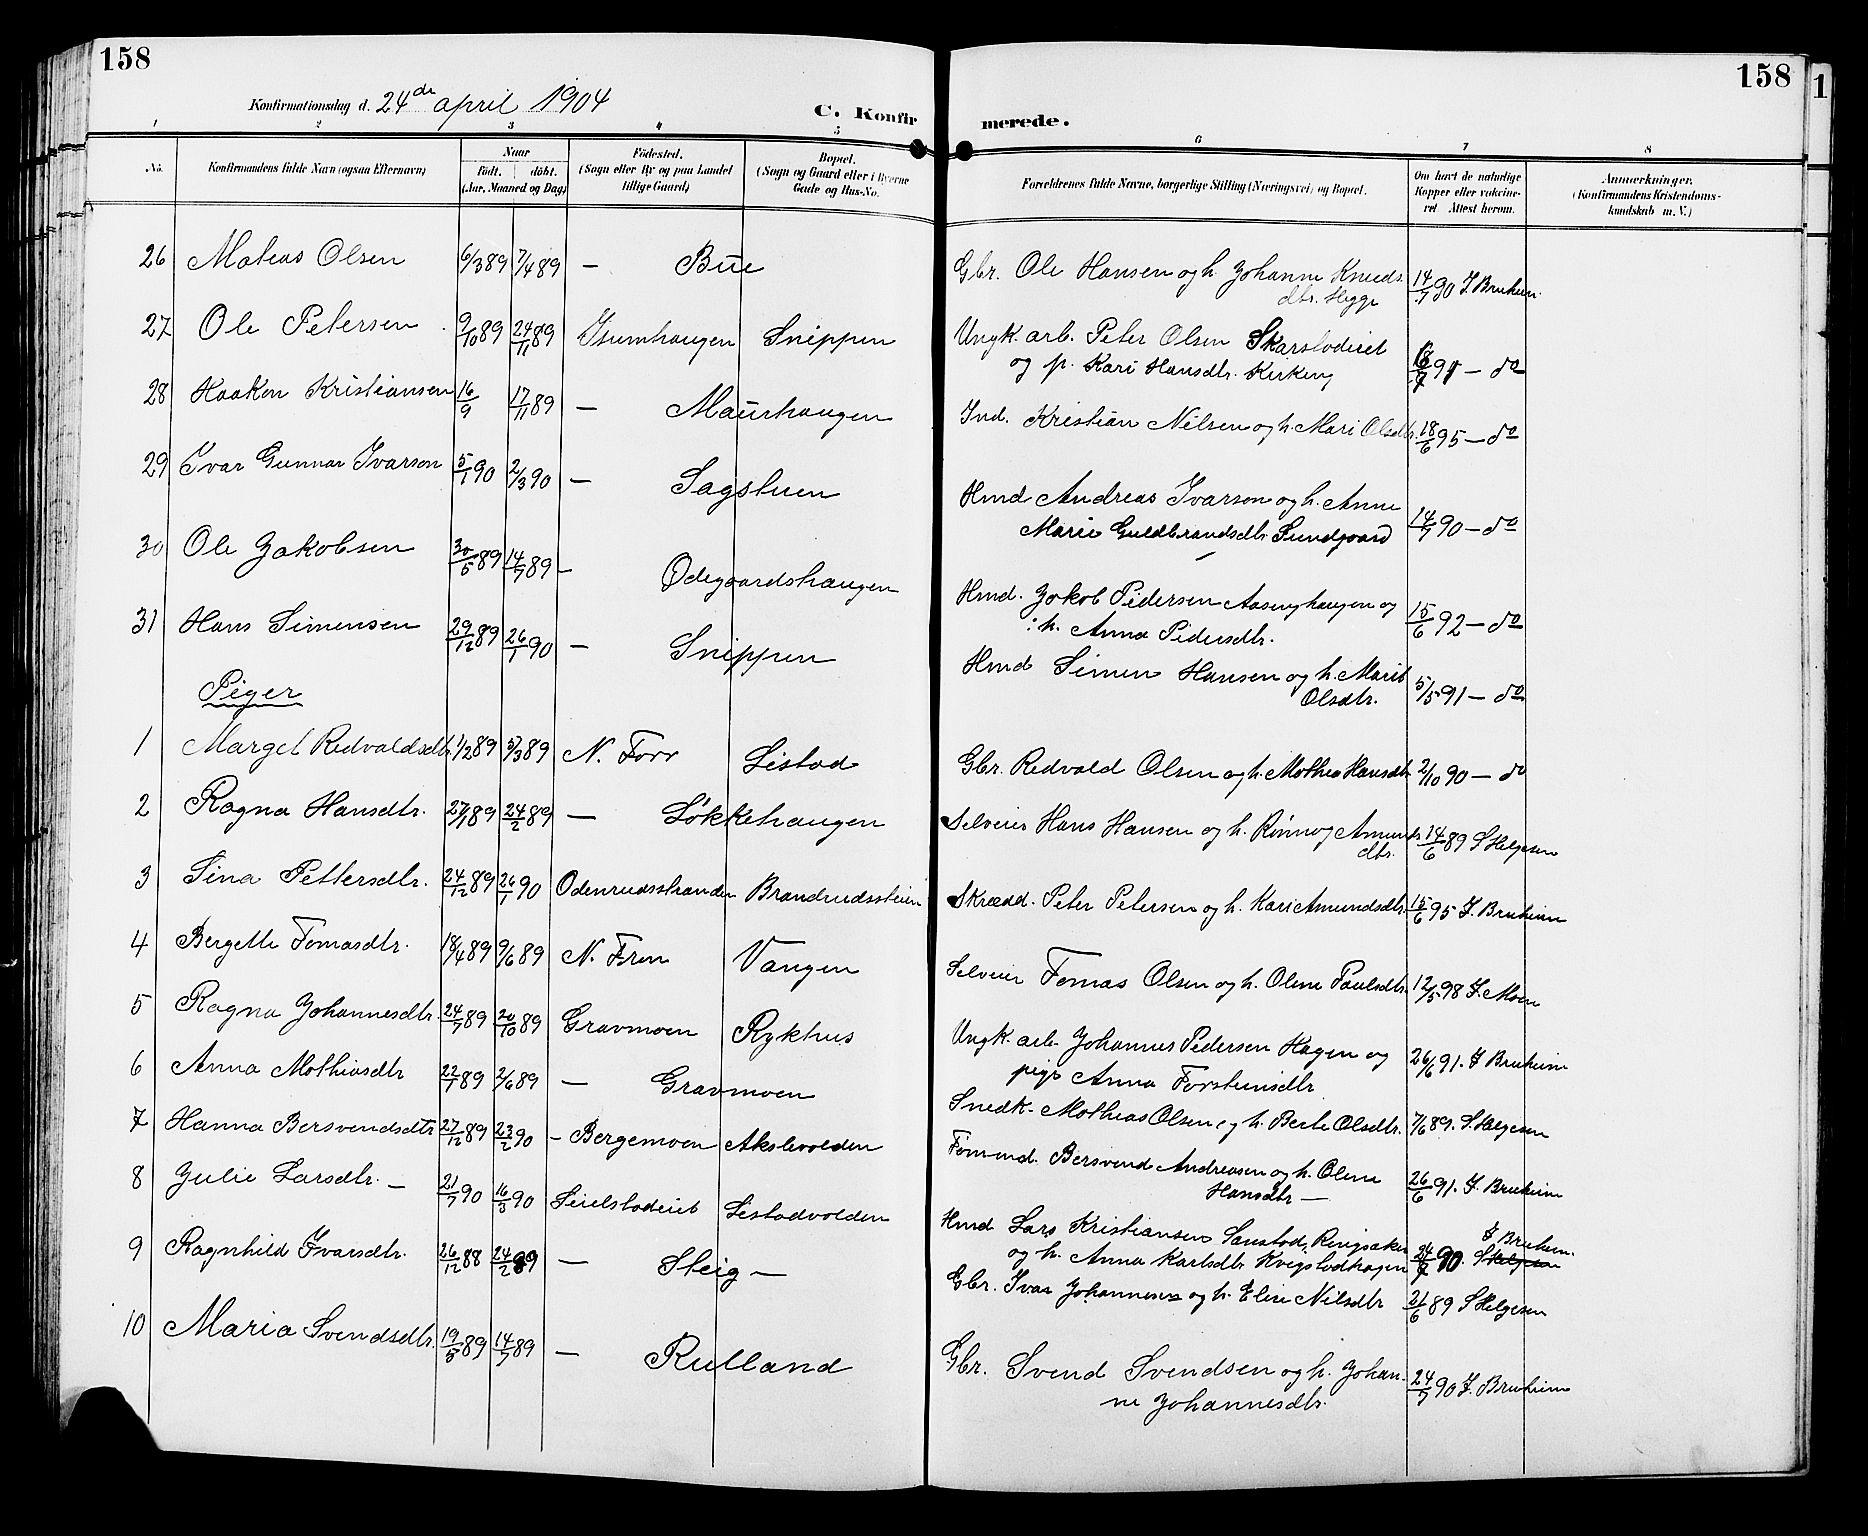 158
158
1
Konfirmationsdag d. 24de april 1904
C. Konfirmerede.
1 2 3 4 5 6 7 8
No. Konfirmandens fulde Navn (ogsaa Efternavn) Naar födt. döbt. (Aar, Maaned og Dag) Födested. (Sogn eller By og paa Landet tillige Gaard) Bopæl. (Sogn og Gaard eller i Byerne Gade og Hus-No. Forældrenes fulde Navne, borgerlige Stilling (Næringsvei) og Bopæl. Om havt de naturlige Kopper eller vakcineret Attest herom. Anmærkninger. (Konfirmandens Kristendomskundskab m. V.)
26 Mateas Olsen 6/3 89 7/4 89 — Bue Gbr. Ole Hansen og h. Johanne Knuds. dtr. Hygge 14/7 90 J. Bruheim
27 Ole Petersen 9/10 89 24/11 89 Isumhaugen Snippen Ungk. arb. Peter Olsen Skarstadeiet og p. Kari Hansdtr. Kirkeng — do
28 Haakon Kristiansen 16/9 17/11 89 — Maurhaugen Ind. Kristian Nilsen og h. Mari Olsdtr. 18/6 95 — do
29 Ivar Gunnar Ivarson 5/1 90 2/3 90 — Sagstuen Hmd Andreas Ivarson og h. Anne Marie Guldbrandsdtr Sundgaard 14/7 90 — do
30 Ole Jakobsen 30/5 89 14/7 89 — Ødegaardshaugen Hmd. Jakob Pedersen Aasenghaugen og h. Anna Pedersdtr. 15/6 92 — do
31 Hans Simensen 29/12 89 26/1 90 — Snippen Hmd Simen Hansen og h. Marit Olsdtr. 5/5 91 — do
Piger
1 Marget Redvaldsdtr. 1/2 89 5/3 89 N. Forr Listad Gbr. Redvald Olsen og h. Mathea Hansdtr 2/10 90 — do
2 Ragna Hansdtr. 27/1 89 24/2 89 — Løkkehaugen Selveier Hans Hansen og h. Rønnog Amundsdtr. 14/6 89 S Helgesen
3 Sina Pettersdtr. 24/12 89 26/1 90 Odenrudsstranden Brandrudssteien Skrædd. Peter Petersen og h. Kari Amundsdtr. 15/6 95 J. Bruheim
4 Bergette Tomasdtr. 18/4 89 9/6 89 N. Fron Vangen Selveier Tomas Olsen og h. Oline Paulsdtr. 12/5 98 J. Moen
5 Ragna Johannesdtr. 24/7 89 20/10 89 Gravmoen Rykhus Ungk. arb. Johannes Pedersen Hagen og pige Anna Torsteinsdtr 26/6 91. J Bruheim
6 Anna Mathiasdtr 22/1 89 2/6 89 — Gravmoen Snedk. Mathias Olsen og h. Berte Olsdtr. 7/6 89. S. Helgesen
7 Hanna Bersvendsdtr 27/12 89 23/2 90 — Bergemoen Akslevolden Tømmd. Bersvend Andreasen og h. Oline Hansdtr — 26/6 91. J. Bruheim
8 Julie Larsdtr. — 21/7 90 16/3 90 Seielstadeiet Listadvolden Hmd Lars Kristiansen Sanstad, Ringsaker og h. Anna Karlsdtr Kvigstadhagen 24/7 90. J Bruheim. S Helgesen
9 Ragnhild Ivarsdtr. 26/12 88 24/2 89 — Steig — Gbr. Ivar Johannesen og h. Elise Nilsdtr 21/6 89 S Helgesen
10 Maria Svendsdtr. 19/5 89 14/7 89 — Rulland Gbr. Svend Svendsen og h. Johanne Johannesdtr. 24/7 90 J. Bruheim